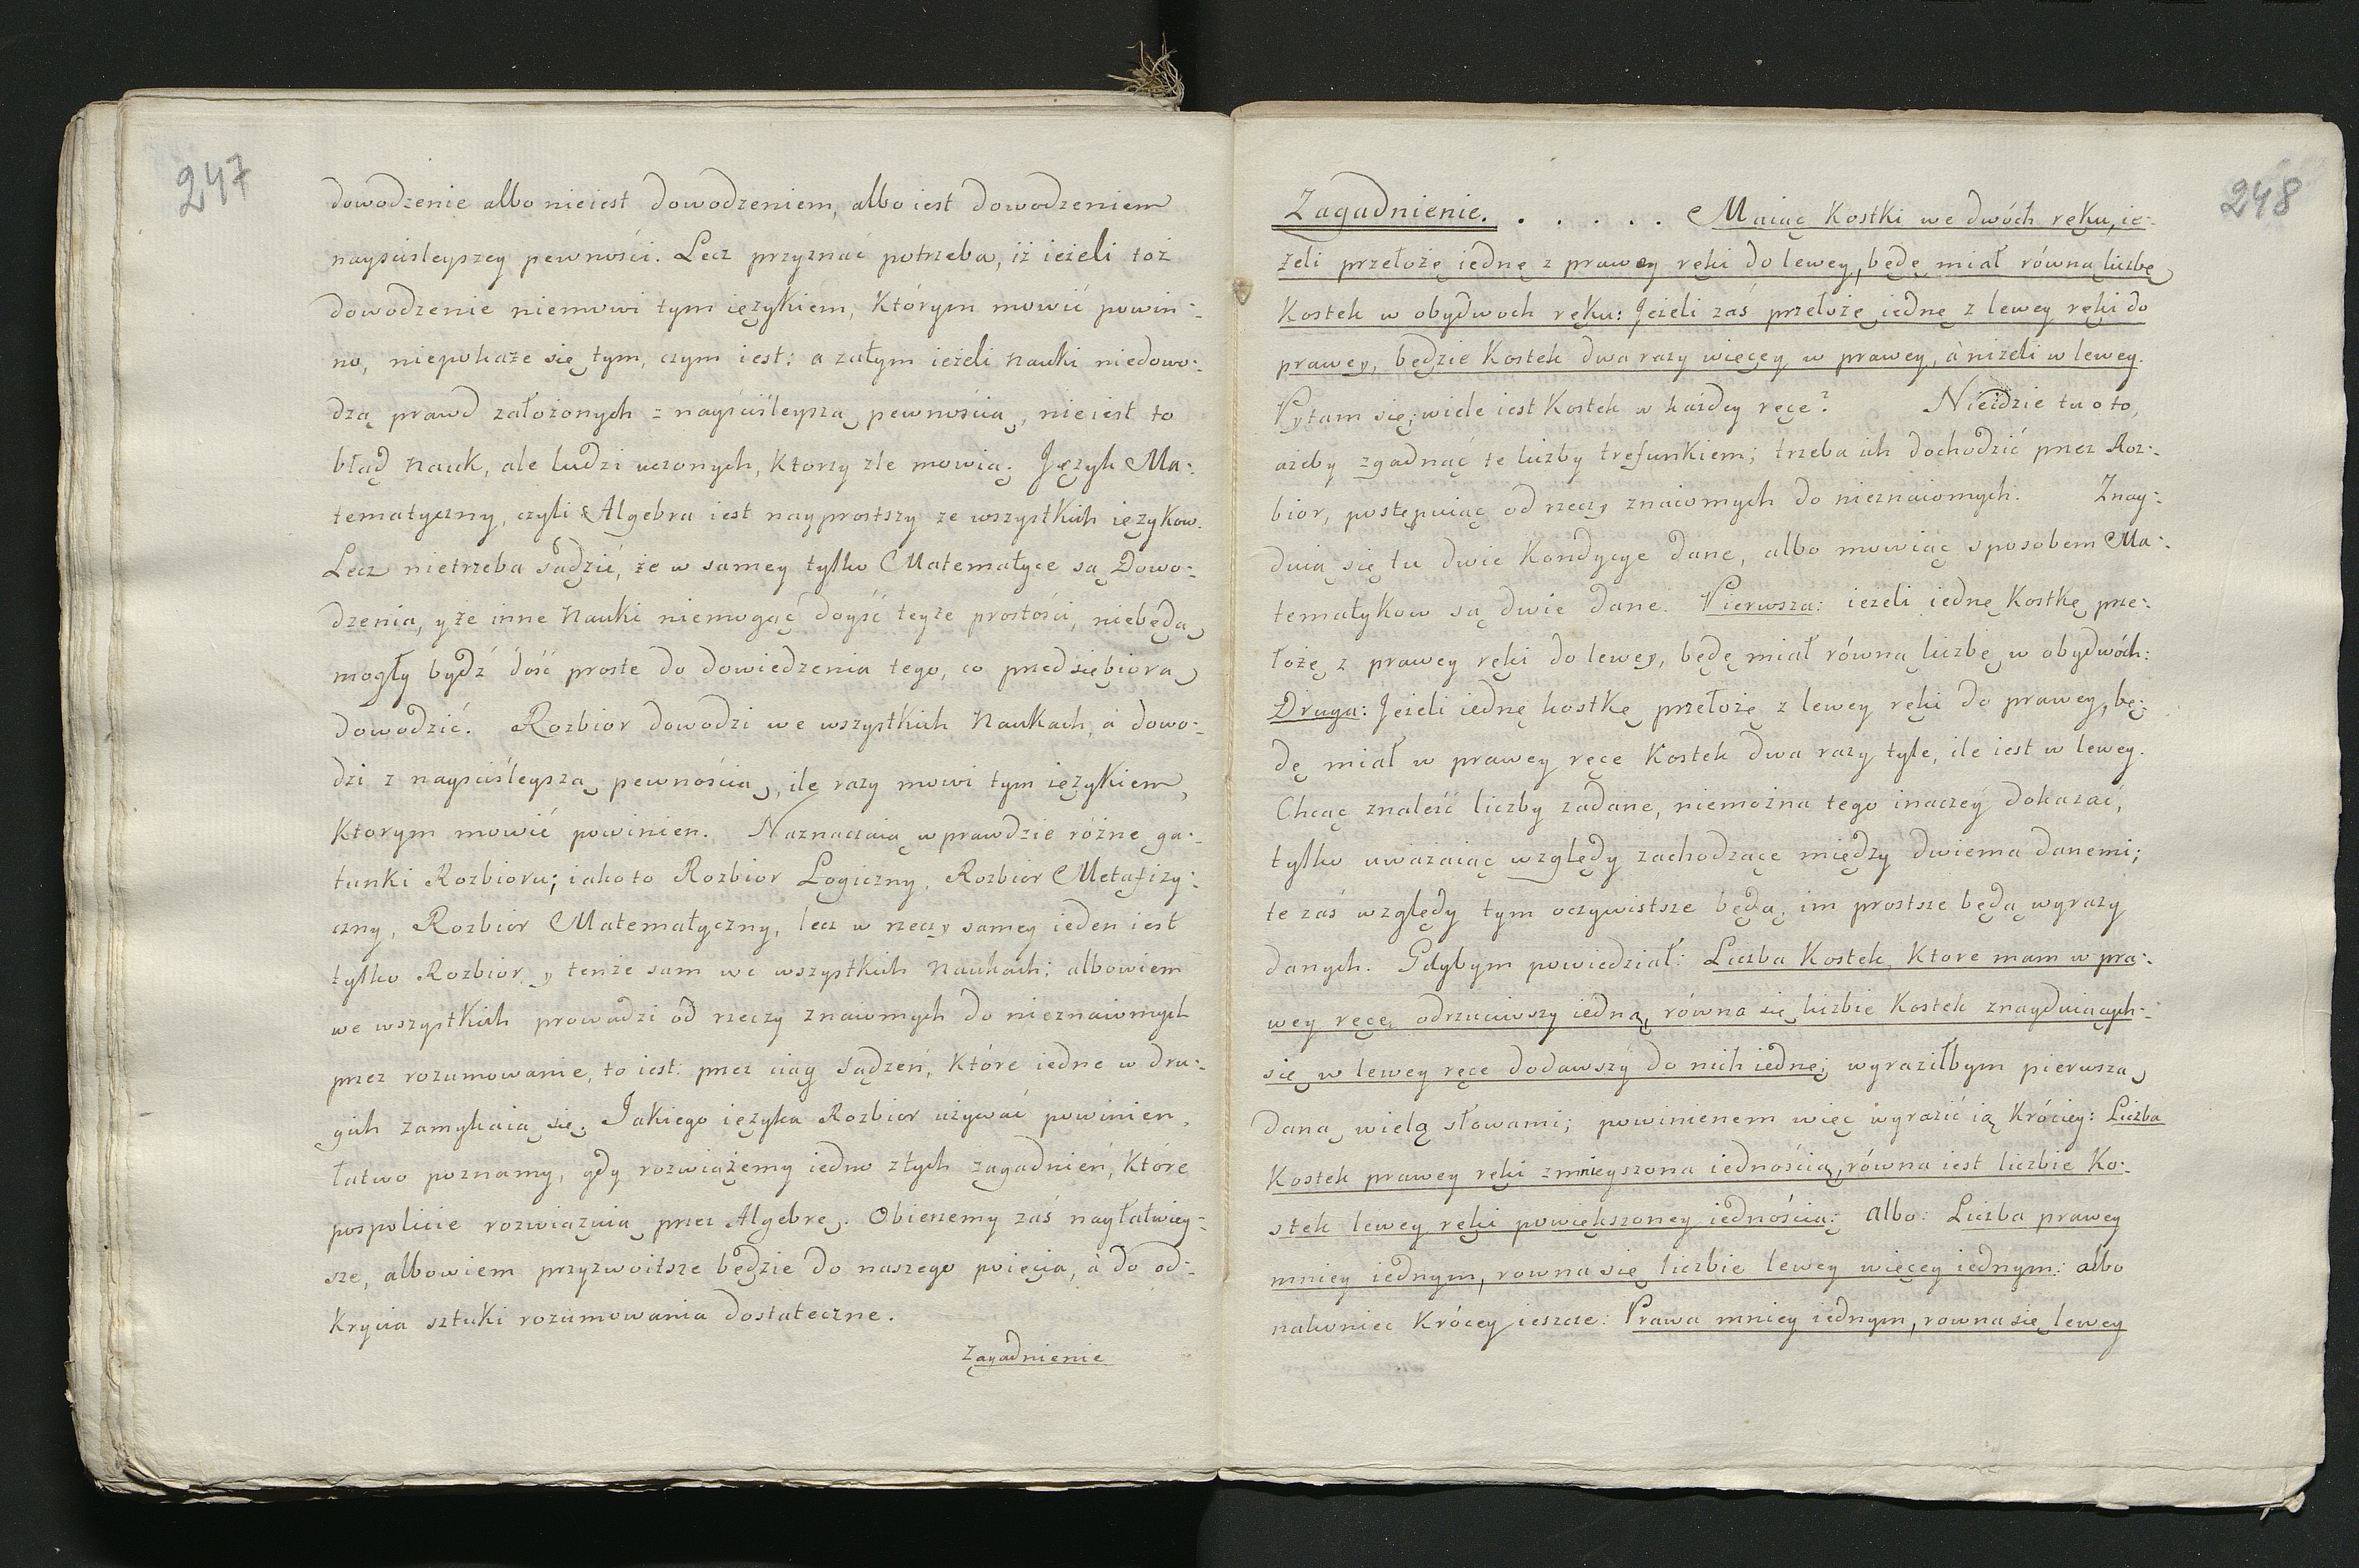 247
dowodzenie albo nieiest dowodzeniem, albo iest dowodzeniem
nayściśleyszey pewności. Lecz przyznać potrzeba, iż ieżeli toż
dowodzenie niemowi tym ięzykiem, którym mowić powin-:
no, niepokaże się tym, czym iest: a zatym ieżeli nauki niedowo:.
dzą prawd założonych z nayściśleyszą pewnością, nieiest to
błąd nauk, ale ludzi uczonych, ktorzy zle mowią. Język Ma:.
tematyczny, czyli Algebra iest nayprostszy ze wszystkich ięzykow.
Lecz nietrzeba sądzić, że w samey tylko Matematyce są Dowo:.
dzenia, y że inne nauki niemogąc doyść teyże prostości, niebędą
mogły bydź dość proste do dowiedzenia tego, co przedsiębiorą
dowodzić. Rozbior dowodzi we wszystkich naukach, à dowo:.
dzi z nayściśleyszą pewnością, ile razy mowi tym ięzykiem,
ktorym mowić powinien. Naznaczaią wprawdzie różne ga:.
tunki Rozbioru; iakoto Rozbior Logiczny, Rozbior Metafizy:.
czny, Rozbior Matematyczny, lecz w rzeczy samey ieden iest
tylko Rozbior, y tenże sam we wszystkich naukach; albowiem
we wszystkich prowadzi od rzeczy znaiomych do nieznaiomych
przez rozumowanie, to iest: przez ciąg sądzeń, które iedne w dru:.
gich zamykaią się. Jakiego ięzyka Rozbior używać powinien,
łatwo poznamy, gdy rozwiążemy iedno z tych zagadnień, które
pospolicie rozwiązuią przez Algebrę. Obierzemy zaś nayłatwiey-:
sze, albowiem przyzwoitsze będzie do naszego poięcia, à do od-:
krycia sztuki rozumowania dostateczne.
Zagadnienie
248
Zagadnienie. . . . . . Maiąc kostki we dwóch ręku, ie-:
żeli przełożę iednę z prawey ręki do lewey, będę miał równą liczbę
kostek w obydwoch ręku: Jeżeli zaś przełożę iednę z lewey ręki do
prawey, będzie kostek dwa razy więcey w prawey, à niżeli w lewey.
Pytam się; wiele iest kostek w każdey ręce? Nieidzie tu o to,
ażeby zgadnąć te liczby trefunkiem; trzeba ich dochodzić przez Roz:.
bior, postępuiąc od rzeczy znaiomych do nieznaiomych. Znay:.
duią się tu dwie kondycye dane, albo mowiąc sposobem Ma:.
tematykow są dwie dane. Pierwsza: ieżeli iednę kostkę prze:.
łożę z prawey ręki do lewey, będę miał równą liczbę w obydwóch:
Druga: Jeżeli iednę kostkę przełożę z lewey ręki do prawey, bę:.
dę miał w prawey ręce kostek dwa razy tyle, ile iest w lewey.
Chcąc znaleść liczby zadane, niemożna tego inaczey dokazać,
tylko uważaiąc względy zachodzące między dwiema danemi;
te zaś względy tym oczywistsze będą, im prostsze będą wyrazy
danych. Gdybym powiedział: Liczba kostek, ktore mam w pra:.
wey ręce, odrzuciwszy iedną, równa się liczbie kostek znayduiących-:
się w lewey ręce dodawszy do nich iednę; wyraziłbym pierwszą
daną wielą słowami; powinienem więc wyrazić ią króciey: Liczba
kostek prawey ręki zmnieyszona iednością, równa iest liczbie ko:.
stek lewey ręki powiększoney iednością; albo: Liczba prawey
mniey iednym, rowna się liczbie lewey więcey iednym: albo
nakoniec krócey ieszcze: Prawa mniey iednym, rowna się lewey